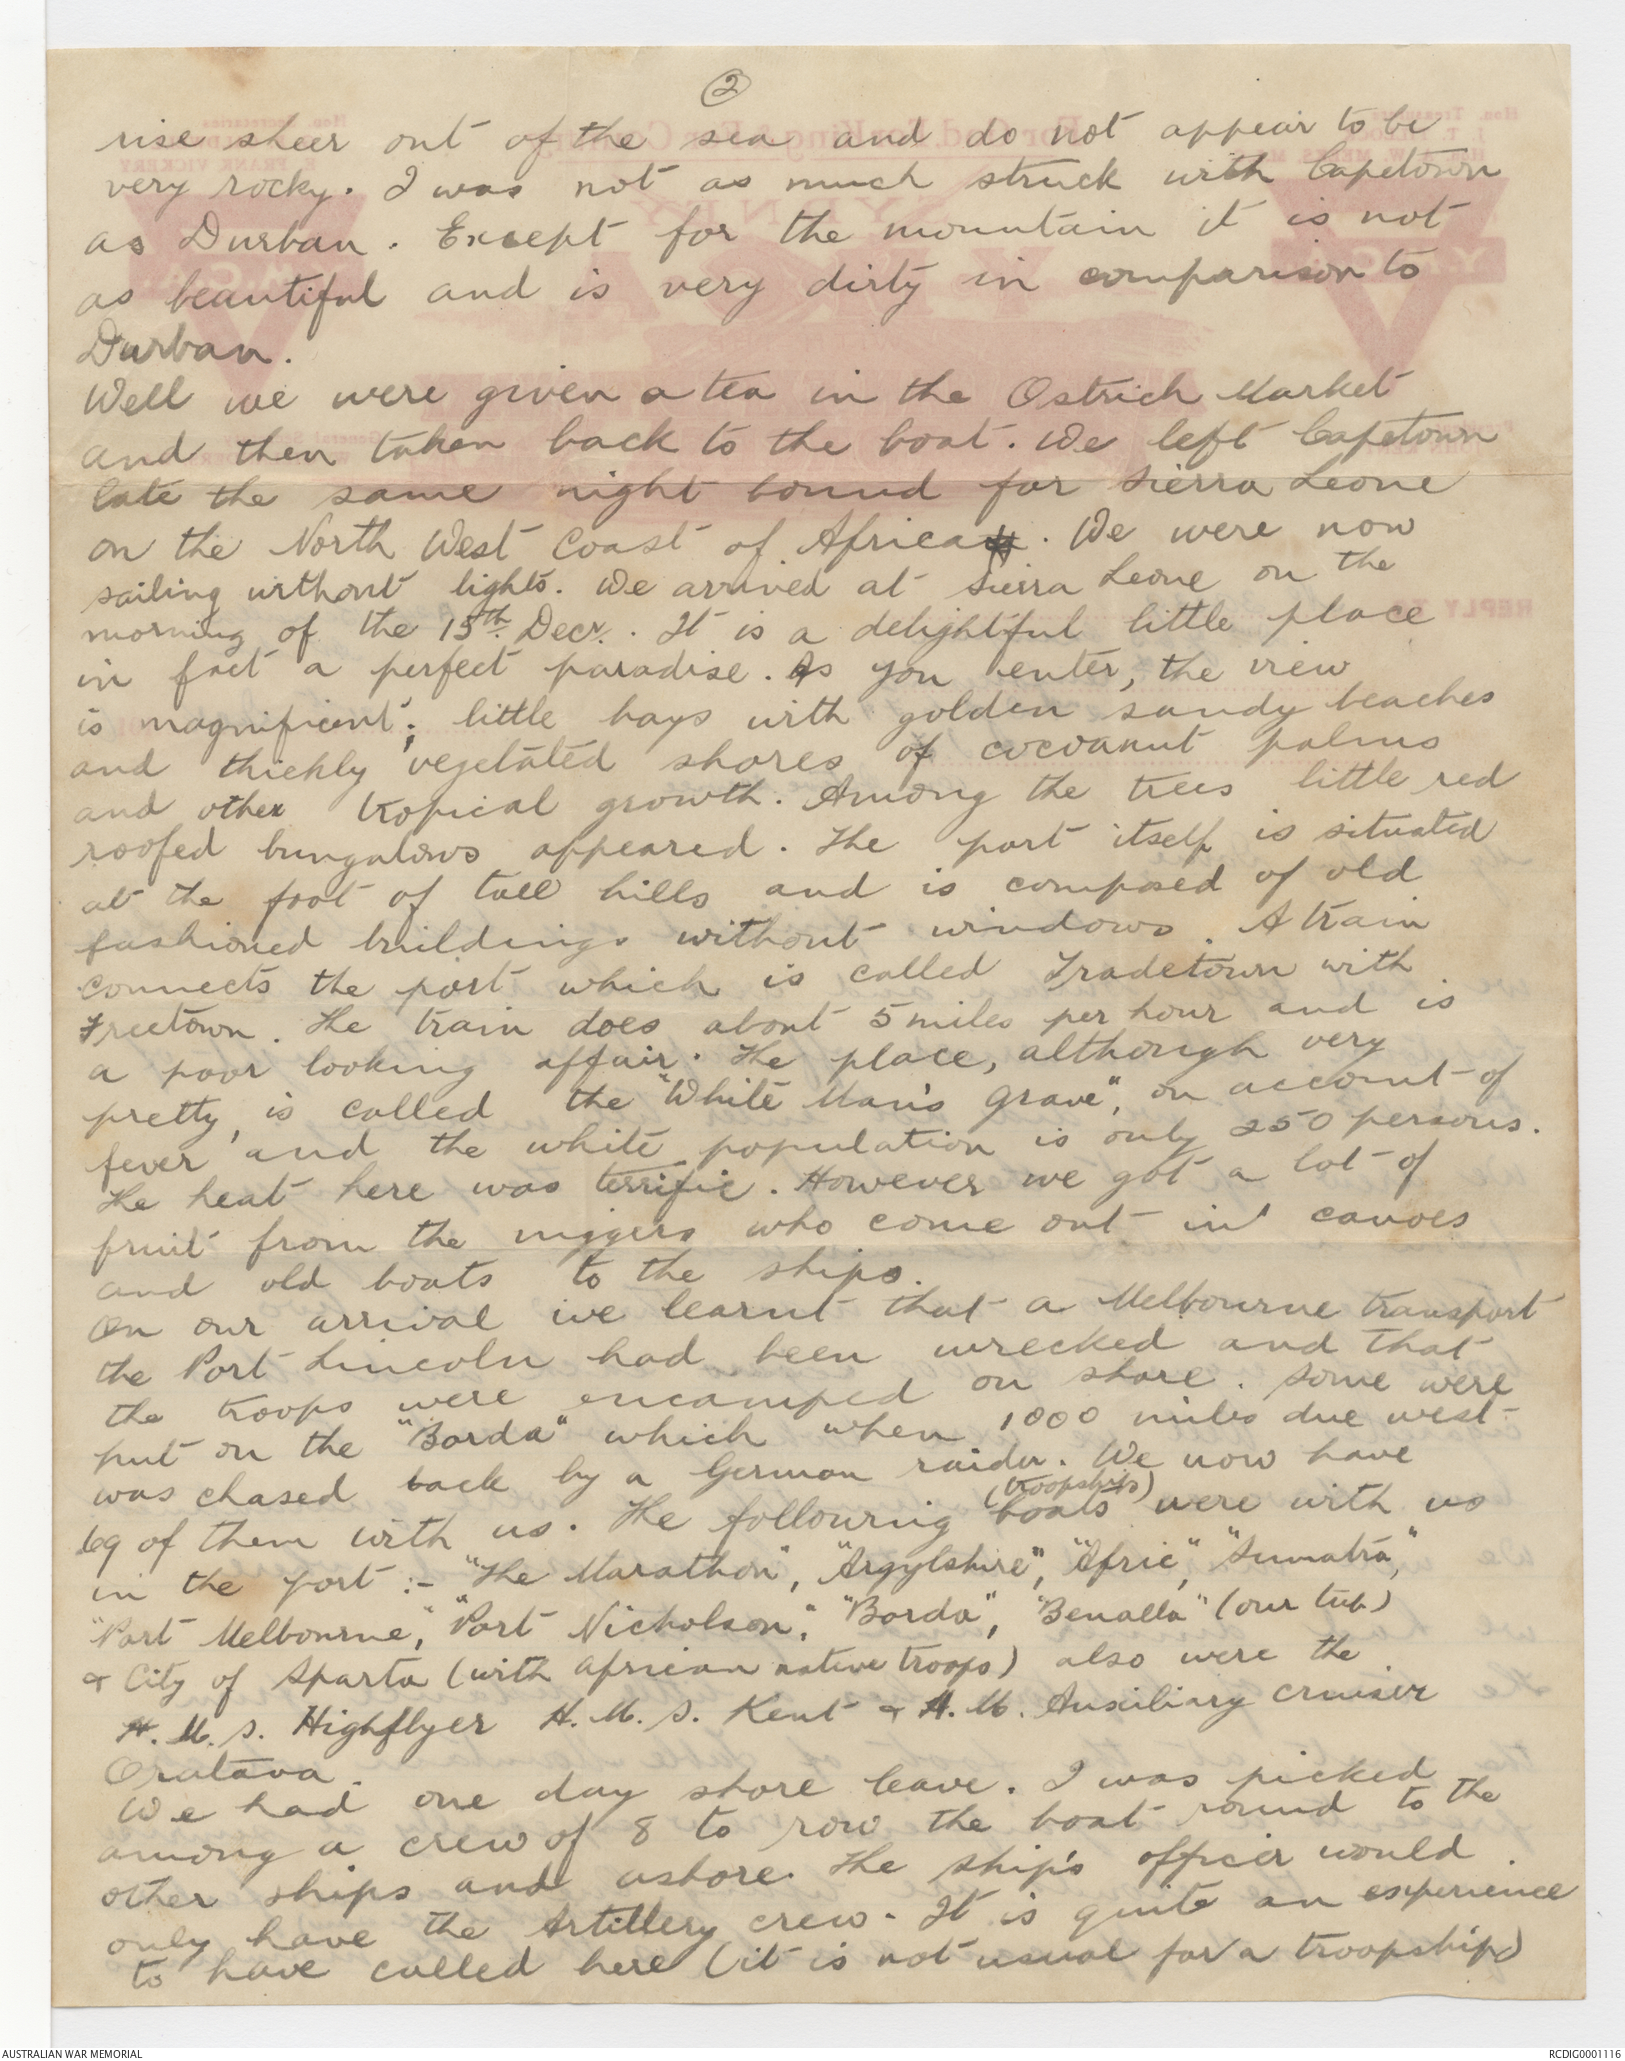 2
rise sheer out of the sea and do not appear to be
very rocky. I was not as much struck with Capetown
as Durban. Except for the mountain it is not
as beautiful and is very dirty in comparison to
Durban.
Well we were given a tea in the Ostrich Market
and then taken back to the boat. We left Capetown
late the same night bound for Sierra Leone
on the North West Coast of Africa. We were now
sailing without lights. We arrived at Sierra Leone on the
morning of the 15th Decr. It is a delightful little place
in fact a perfect paradise. As you enter, the view
is magnificent; little bays with golden sandy beaches
and thickly vegetated shores of cocoanut palms
and other tropical growth. Among the trees little red
roofed bungalows appeared. The port itself is situated
at the foot of tall hills and is composed of old
fashioned buildings without windows. A train
connects the port which is called Tradetown with
Freetown. The train does about 5 miles per hour and is
a poor looking affair. The place, although very
pretty, is called the "White Man's Grave", on account of
fever and the white population is only 250 persons.
The heat here was terrific. However we got a lot of
fruit from the niggers who come out in canoes
and old boats to the ships.
On our arrival we learnt that a Melbourne transport
the Port Lincoln had been wrecked and that
the troops were encamped on shore. Some were
put on the "Borda" which when 1000 miles due west
was chased back by a German raider. We now have
69 of them with us. The following boats (troopships) were with us
in the port :- "The Marathon", "Argylshire", "Afric", "Sumatra",
"Port Melbourne", "Port Nicholson", "Borda", "Benalla" (our tub)
& City of Sparta (with African native troops) also were the
H.M.S. Highflyer H.M.S. Kent & H.M. Auxiliary cruiser
Oratava.
We had one day shore leave. I was picked
among a crew of 8 to row the boat round to the
other ships and ashore. The ship's officer would
only have the Artillery crew. It is quite an experience
to have called here (it is not usual for a troopship)
AUSTRALIAN WAR MEMORIAL
RCDIG0001116